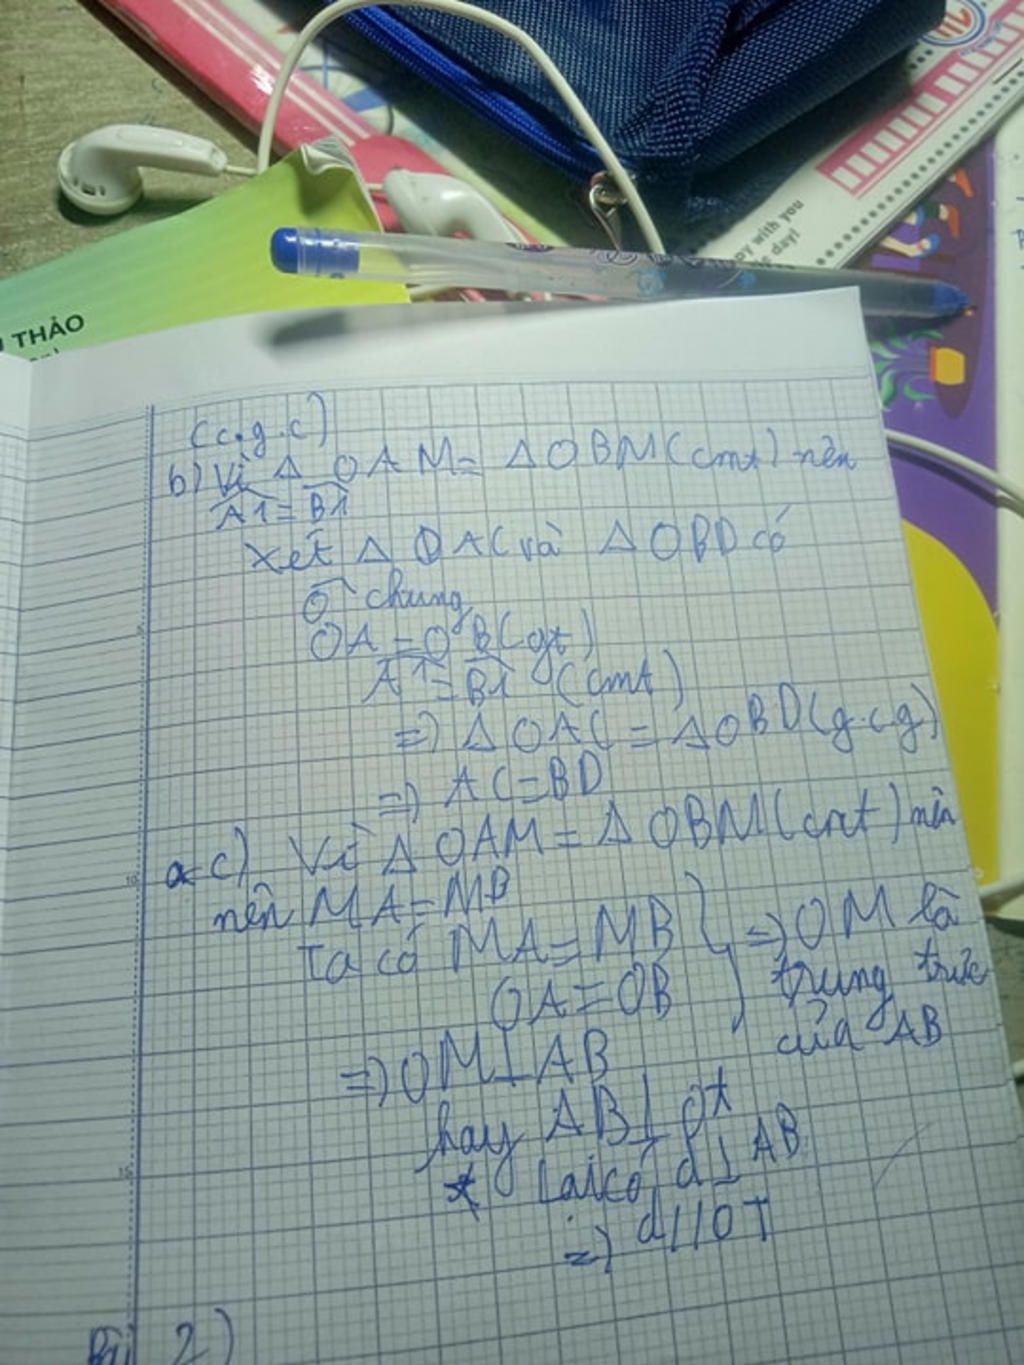 THẢO
ppy with you
day!
(c.g.c)
b) Vì Δ OAM = Δ OBM (cmt) nên
A1 = B1
Xét Δ OAC và Δ OBD có
O chung
OA = OB (gt)
A1 = B1 (cmt)
=) Δ OAC = Δ OBD (g.c.g)
=) AC = BD
c) Vì Δ OAM = Δ OBM (cmt) nên
nên MA = MB
Ta có MA = MB } =) OM là
OA = OB trung trực
của AB
=) OM ⊥ AB
hay AB ⊥ Ot
Lại có d ⊥ AB
=) d // OT
Bài 2)
5
10
15